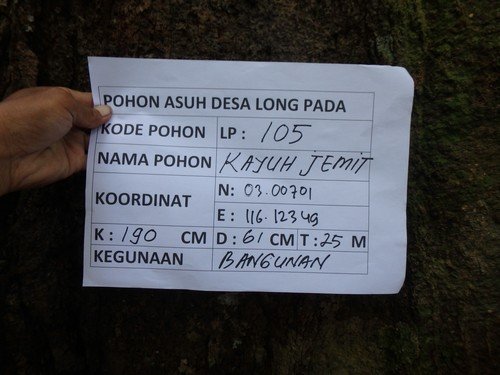 POHON ASUH DESA LONG PADA
KODE POHON LP : 105
NAMA POHON KAYUH JEMIT
KOORDINAT N: 03.00701
E : 116.12349
K : 190 CM D : 61 CM T : 25 M
KEGUNAAN BANGUNAN